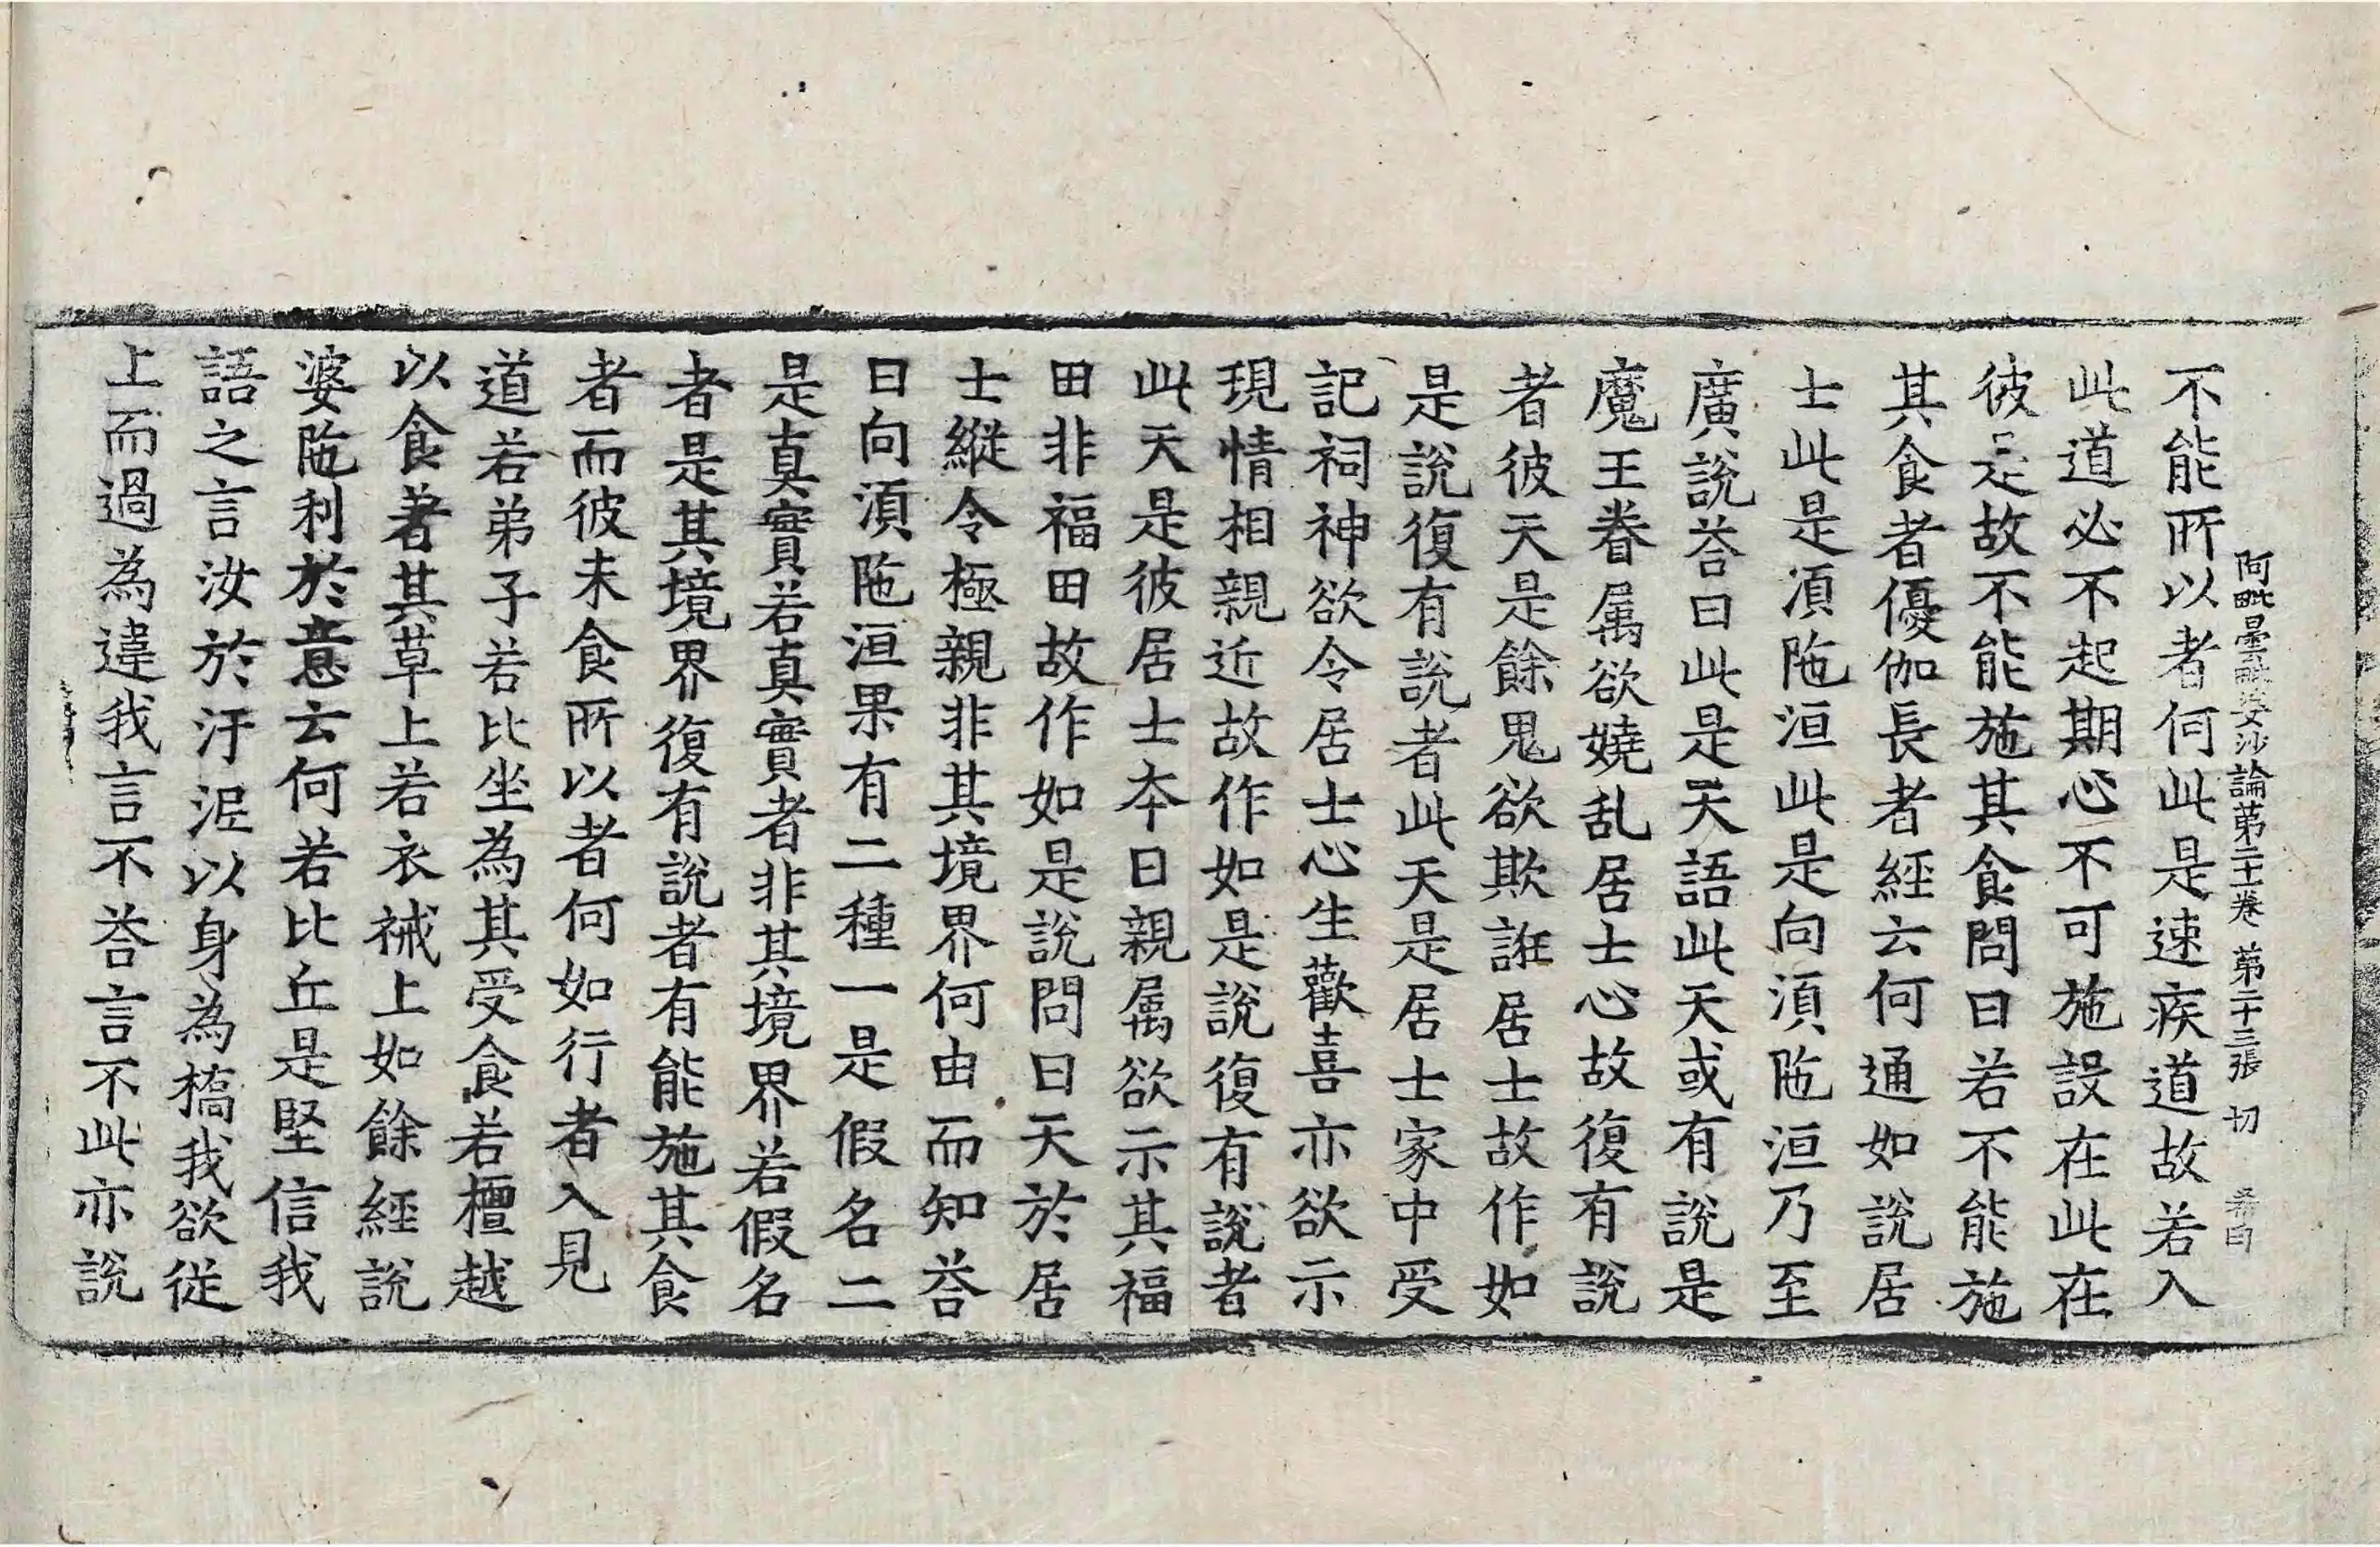 不能所以者何此是速疾道故若入
阿毗曇毗婆沙論第二十卷 第二十三張 切
此道必不起期心不可施設在此在
彼是故不能施其食問曰若不能施
其食者優伽長者經云何通如說居
士此是湏陁洹此是向湏陁洹乃至
廣說荅曰此是天語此天或有說是
魔王眷属欲嬈乱居士心故復有說
者彼天是餘鬼欲欺誑居士故作如
是說復有說者此天是居士家中受
記祠神欲令居士心生歡喜亦欲示
現情相親近故作如是說復有說者
此天是彼居士夲日親属欲示其福
田非福田故作如是說問曰天於居
士縱令極親非其境界何由而知荅
曰向湏陁洹果有二種一是假名二
是真實若真實者非其境界若假名
者是其境界復有說者有能施其食
者而彼未食所以者何如行者入見
道若弟子若比坐為其受食若檀越
以食著其草上若衣裓上如餘經說
婆陁利於意云何若比丘是堅信我
語之言汝於汙泥以身為橋我欲從
上而過為違我言不荅言不此亦說